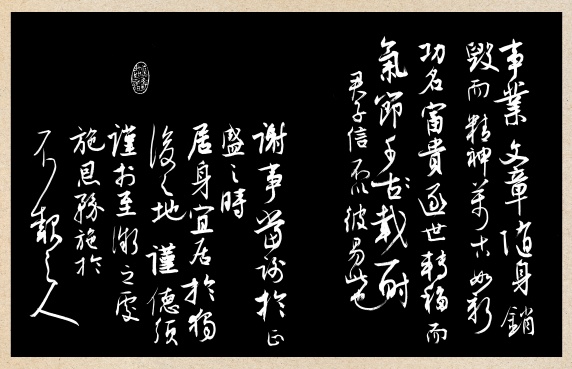 事業文章隨身銷
毀而精神萬古如新
功名富貴逐世轉移而
氣節千古載一时
君子信不以彼易此也
謝事當謝於正
盛之時
居身宜居於獨
後之地謹德須
謹於至微之處
施恩務施於
不報之人